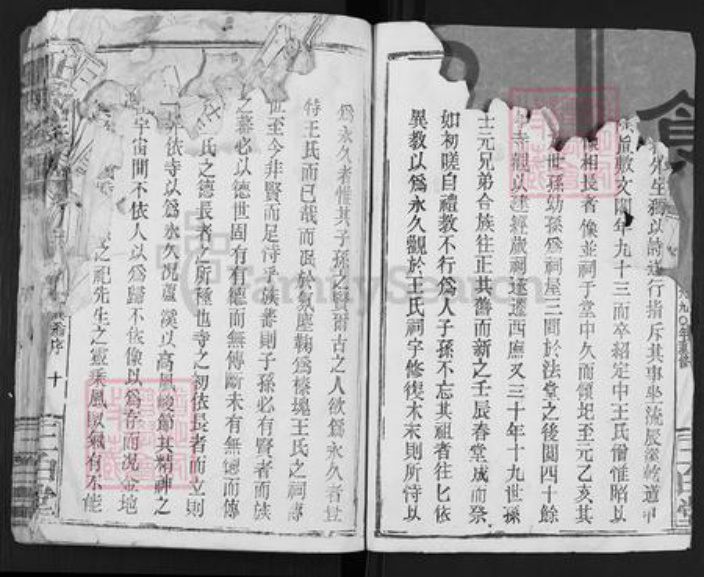 先生獨以詩送行指斥其事坐流辰溪乾道中
敷文閣年九十三而卒紹定中王氏僧惟昭以
像相長者像並祠于堂中久而傾圮至元乙亥其
世孫幼孫為祠屋三間於法堂之後閱四十餘
寺觀以建經歲祠遂遷西廡又三十年十九世孫
士元兄弟合族往正其舊而新之壬辰春堂成而祭
如初嗟自禮教不行為人子孫不忘其祖者往匕依
異教以為永久觀於王氏祠宇修復本末則所恃以
為永久者惟其子孫之賢爾古之人欲為永久者豈
特王氏而已哉而泯於氛塵鞠為榛塊王氏之祠專
世至今非賢而足恃乎族蕃則子孫必有賢者而族
之蕃必以德世固有有德而無傳斷未有無德而傳
氏之德長者之所種也寺之初依長者而立則
非依寺以為永久况蘆溪以高風峻節其精神之
宇宙間不依人以為歸不依像以為存而况金地
之祀先生之靈乘風馭氣有不能
序 十
三百堂